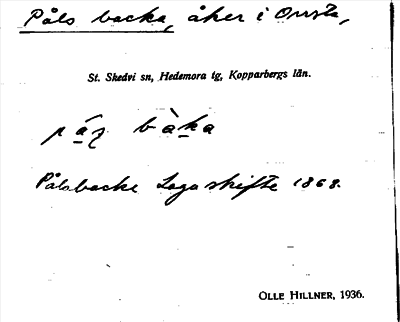 Påls backa, åker i Orrsta,
St. Skedvi sn, Hedemora tg, Kopparbergs län.
bàka
Pålsbacke Laga skifte 1868.
OLLE HILLNER, 1936.